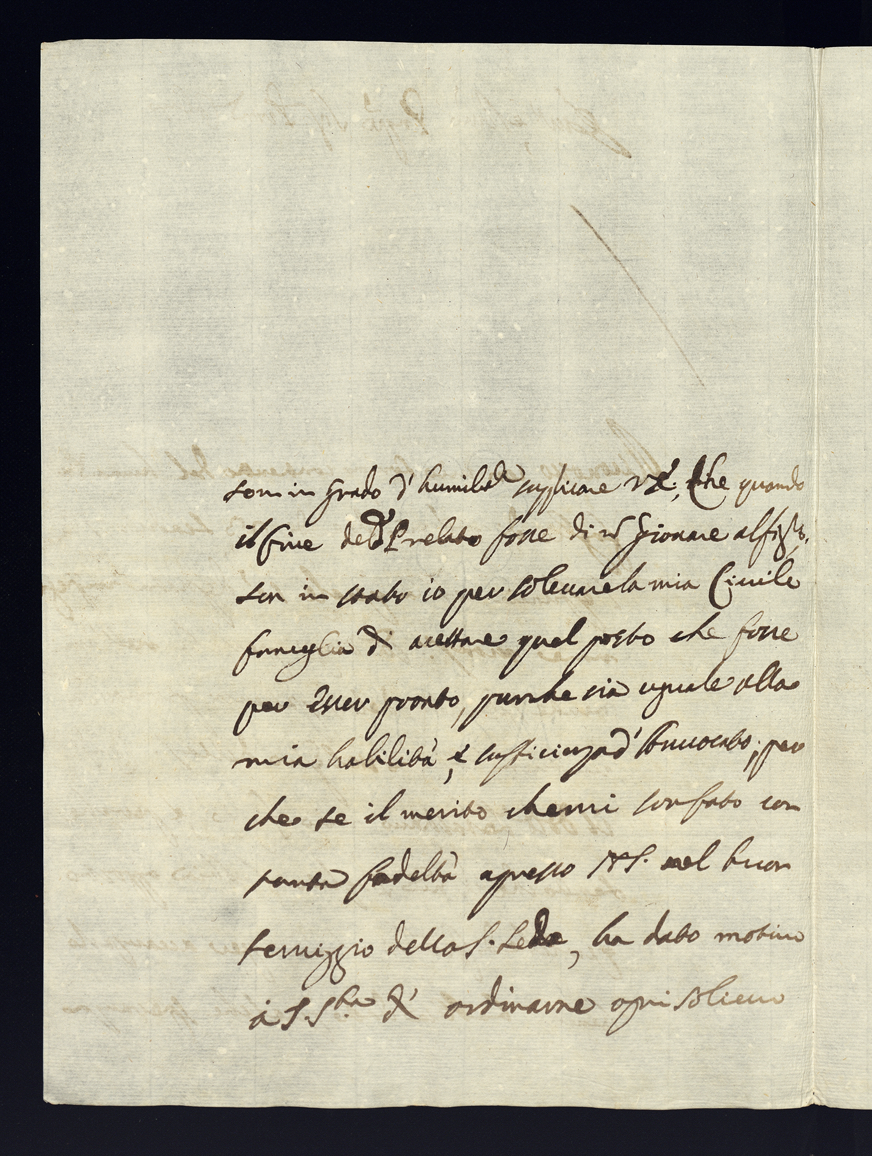 son in grado d' humilte supplicare V. E., che quando
il fine del Prelato fosse di
son in stato io per solevare la mia Civile
fameglia di acettare quel posto che fosse
per esser pronto, purche sia uguale alla
mia habilità, e sufficienza d' Avvocato; per
che se il merito che mi son fato con
tanta fedeltà apresso N. S. nel buon
servizzio della S. Sede, ha dato motivo
à S. Sta. d' ordinarne ogni solievo